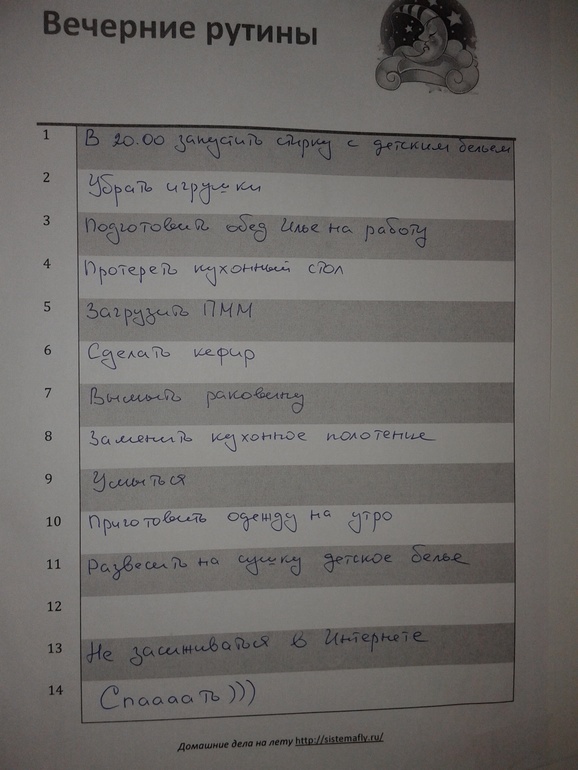 Вечерние рутины
1 В 20.00 запустить стирку с детским бельем
2 Убрать игрушки
3 Подготовить обед Илье на работу
4 Протереть кухонный стол
5 Загрузить ПММ
6 Сделать кефир
7 Вымыть раковину
8 Заменить кухонное полотенце
9 Умыться
10 Приготовить одежду на утро
11 Развесить на сушку детское белье
12
13 Не засиживаться в Интернете
14 Спаааать )))
Домашние дела на лету http://sistemafly.ru/